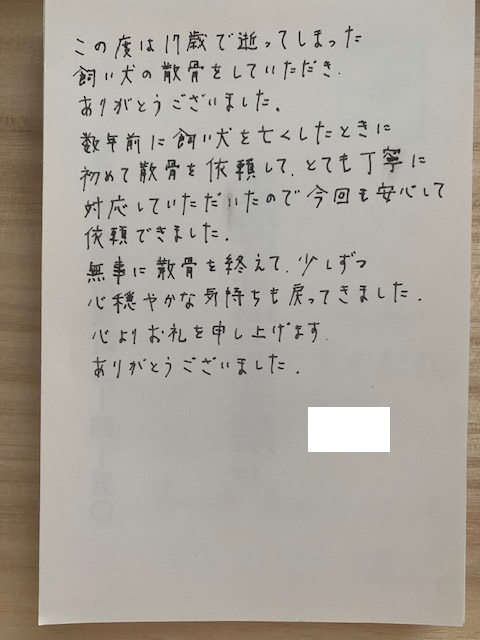 この度は17歳で逝ってしまった
飼い犬の散骨をしていただき.
ありがとうございました.
数年前に飼い犬を亡くしたときに
初めて散骨を依頼して、とても丁寧に
対応していただいたので今回も安心して
依頼できました.
無事に散骨を終えて、少しずつ
心穏やかな気持ちも戻ってきました.
心よりお礼を申し上げます.
ありがとうございました.